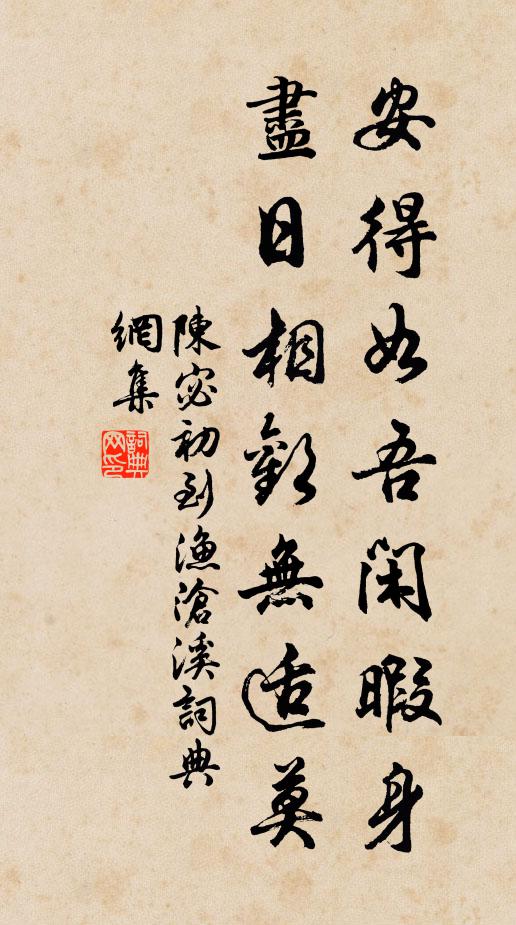 安得如吾閑暇身
盡日相歡無適莫
陳宓初到漁滄溪詞典
網集
詞典
网印